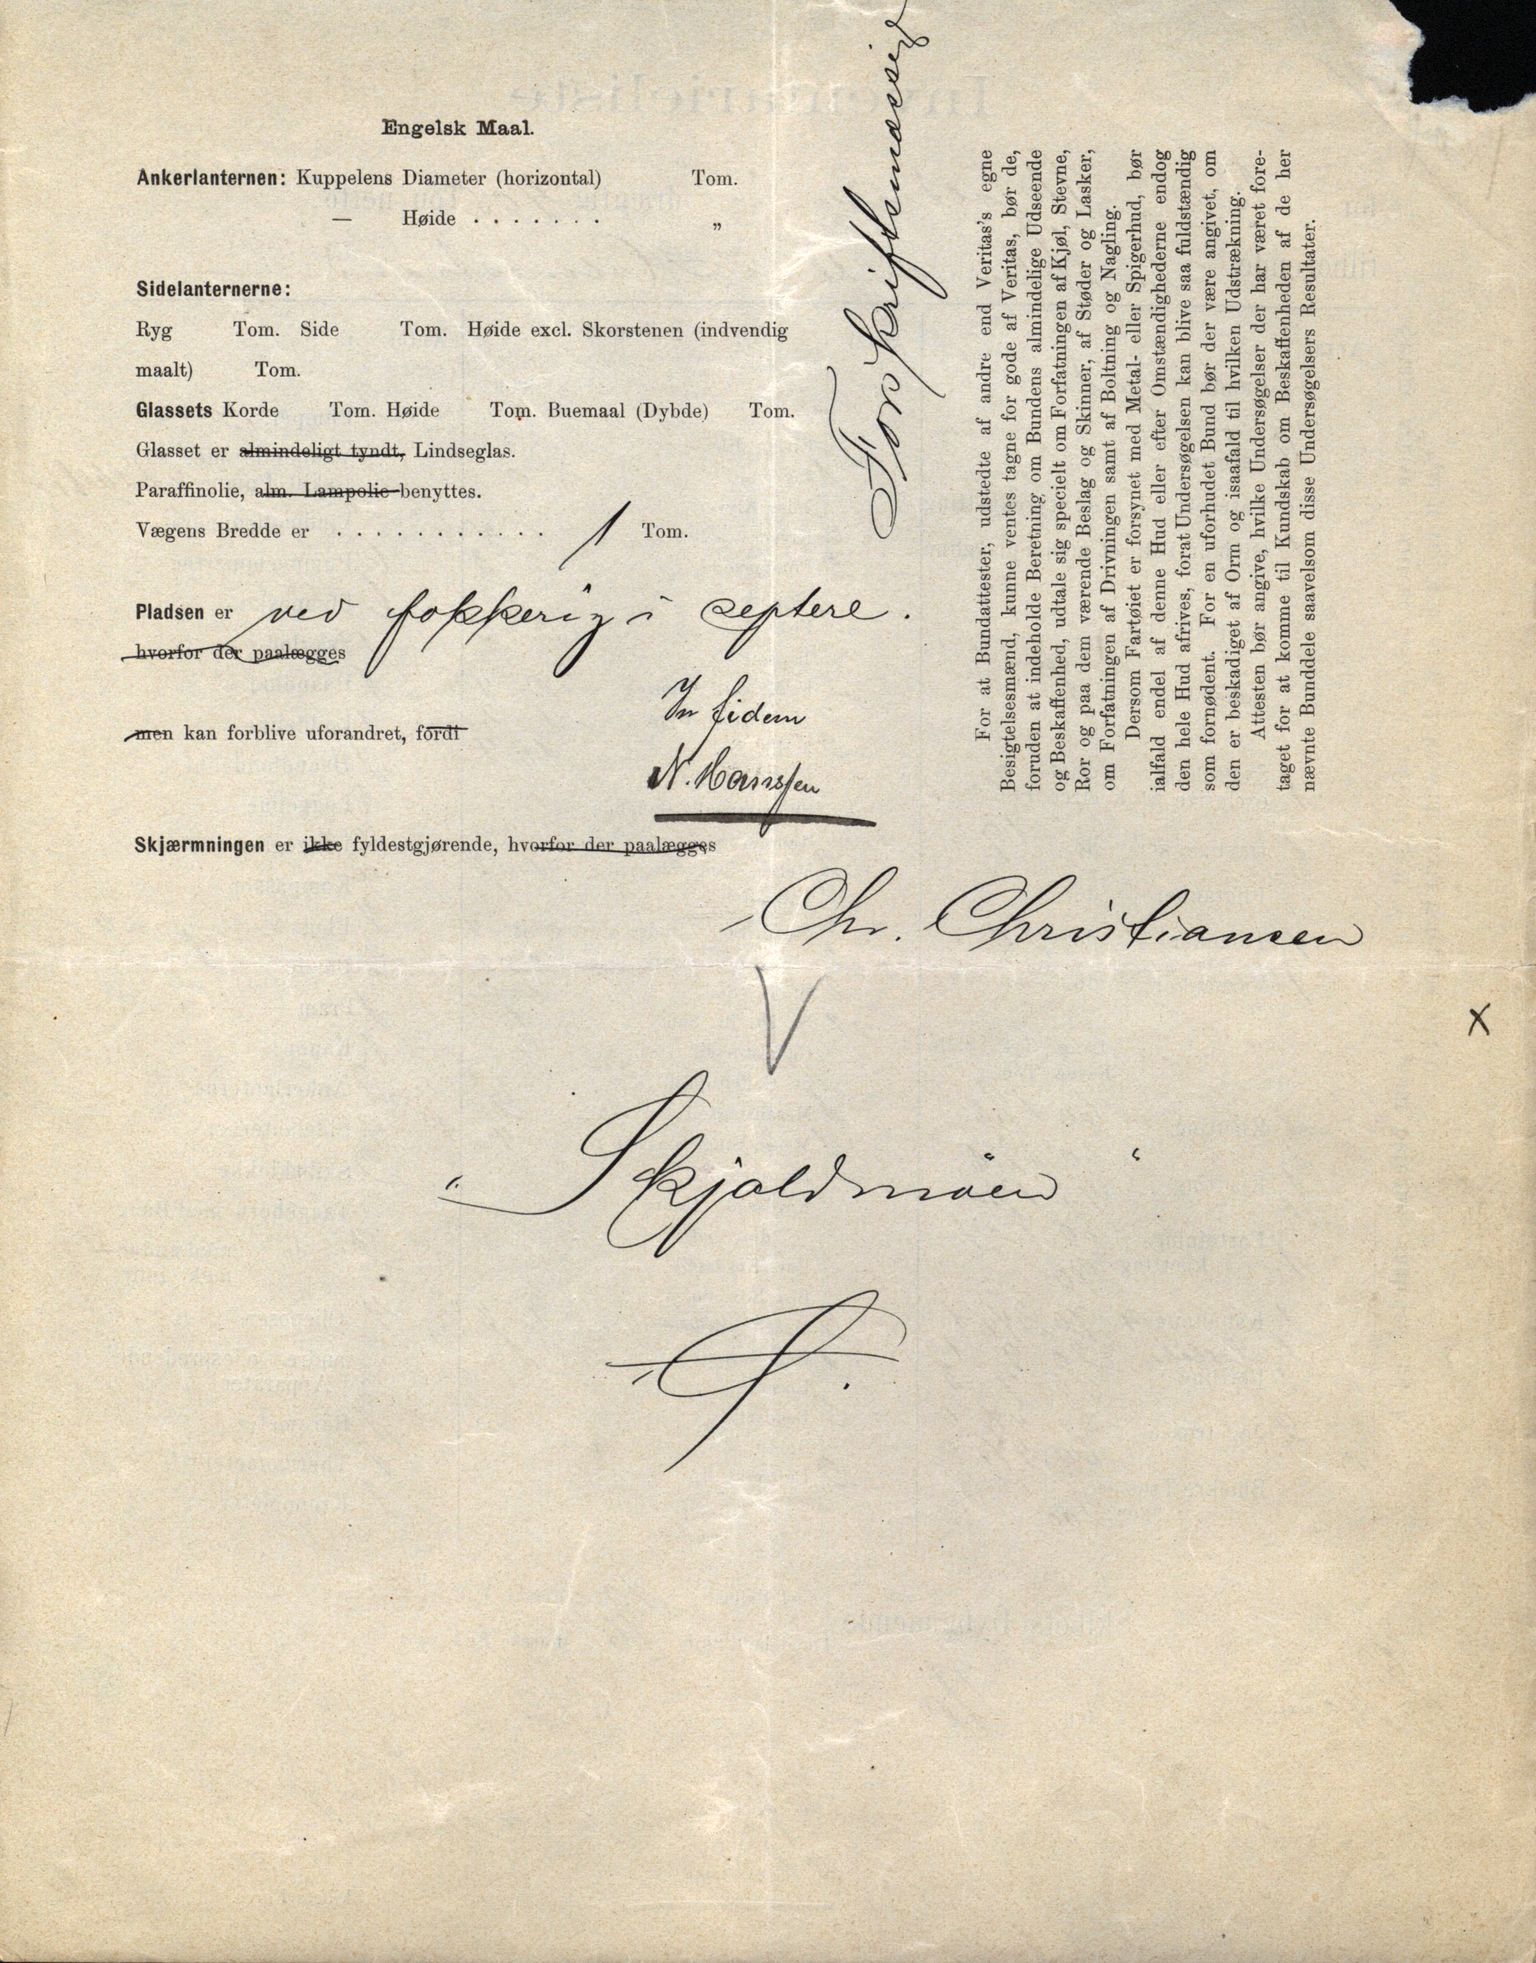 Engelsk Maal.
Ankerlanternen: Kuppelens Diameter (horizontal) Tom.
— Høide . . . . . . . „
Sidelanternerne:
Ryg Tom. Side Tom. Høide excl. Skorstenen (indvendig
maalt) Tom.
Glassets Korde Tom. Høide Tom. Buemaal (Dybde) Tom.
Glasset er almindeligt tyndt, Lindseglas.
Paraffinolie, alm. Lampolie benyttes.
Vægens Bredde er . . . . . . . . . . . 1 Tom.
Pladsen er ved fokkerig i septere.
hvorfor der paalægges
men kan forblive uforandret, fordi
In fidem
N. Hanssen
Skjærmningen er ikke fyldestgjørende, hvorfor der paalægges
Forskriftsmæssig
For at Bundattester, udstedte af andre end Veritas's egne
Besigtelsesmænd, kunne ventes tagne for gode af Veritas, bør de,
foruden at indeholde Beretning om Bundens almindelige Udseende
og Beskaffenhed, udtale sig specielt om Forfatningen af Kjøl, Stevne,
Ror og paa dem værende Beslag og Skinner, af Støder og Lasker,
om Forfatningen af Drivningen samt af Boltning og Nagling.
Dersom Fartøiet er forsynet med Metal- eller Spigerhud, bør
ialfald endel af denne Hud eller efter Omstændighederne endog
den hele Hud afrives, forat Undersøgelsen kan blive saa fuldstændig
som fornødent. For en uforhudet Bund bør der være angivet, om
den er beskadiget af Orm og isaafald til hvilken Udstrækning.
Attesten bør angive, hvilke Undersøgelser der har været fore-
taget for at komme til Kundskab om Beskaffenheden af de her
nævnte Bunddele saavelsom disse Undersøgelsers Resultater.
Chr. Christiansen
V
X
"Skjoldmöen"